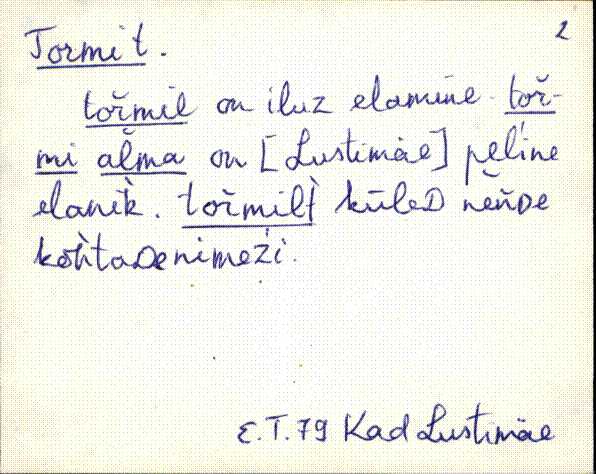 2
Tormi t.
tořmil on iluz elamine. toř-
mi ǎlma on [Lustimäe] peĺine
elanìk. tořmilt̀ kūleD nēňDe
kohtaDe nimeži.
E.T.79 Kad Lustimäe